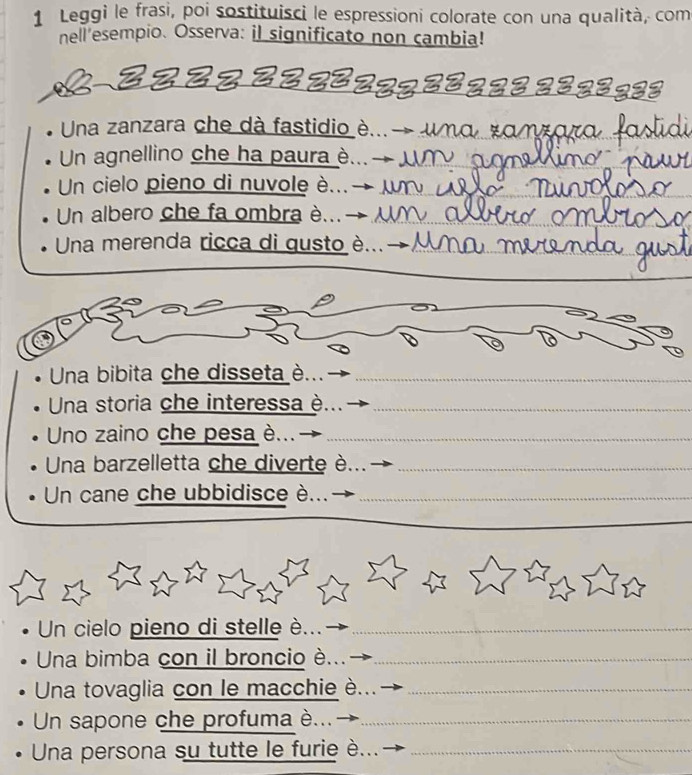 1 Leggi le frasi, poi sostituisci le espressioni colorate con una qualità, com
nell'esempio. Osserva: il significato non cambia!
• Una zanzara che dà fastidio è... → una zanzara fastidi
• Un agnellino che ha paura è... → un agnellino paur
• Un cielo pieno di nuvole è... → un cielo nuvoloso
• Un albero che fa ombra è... → un albero ombroso
• Una merenda ricca di gusto è... → Una merenda gust
• Una bibita che disseta è... →
• Una storia che interessa è... →
• Uno zaino che pesa è... →
• Una barzelletta che diverte è... →
• Un cane che ubbidisce è... →
• Un cielo pieno di stelle è... →
• Una bimba con il broncio è... →
• Una tovaglia con le macchie è... →
• Un sapone che profuma è... →
• Una persona su tutte le furie è... →